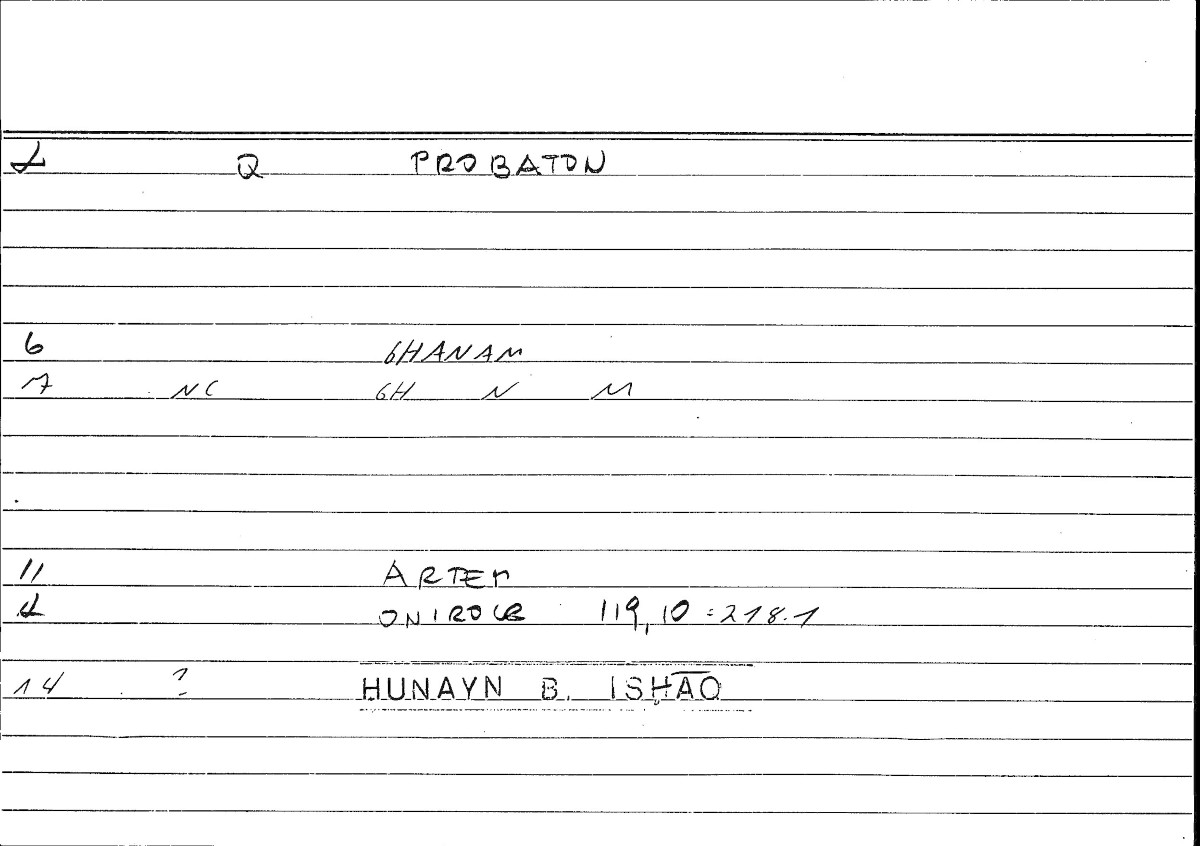 Q PROBATON
6 GHANAM
7 NC GH N M
11 ARTEM
ONIROCR 119,10 = 218.1
14 ? HUNAYN B. ISḤĀQ